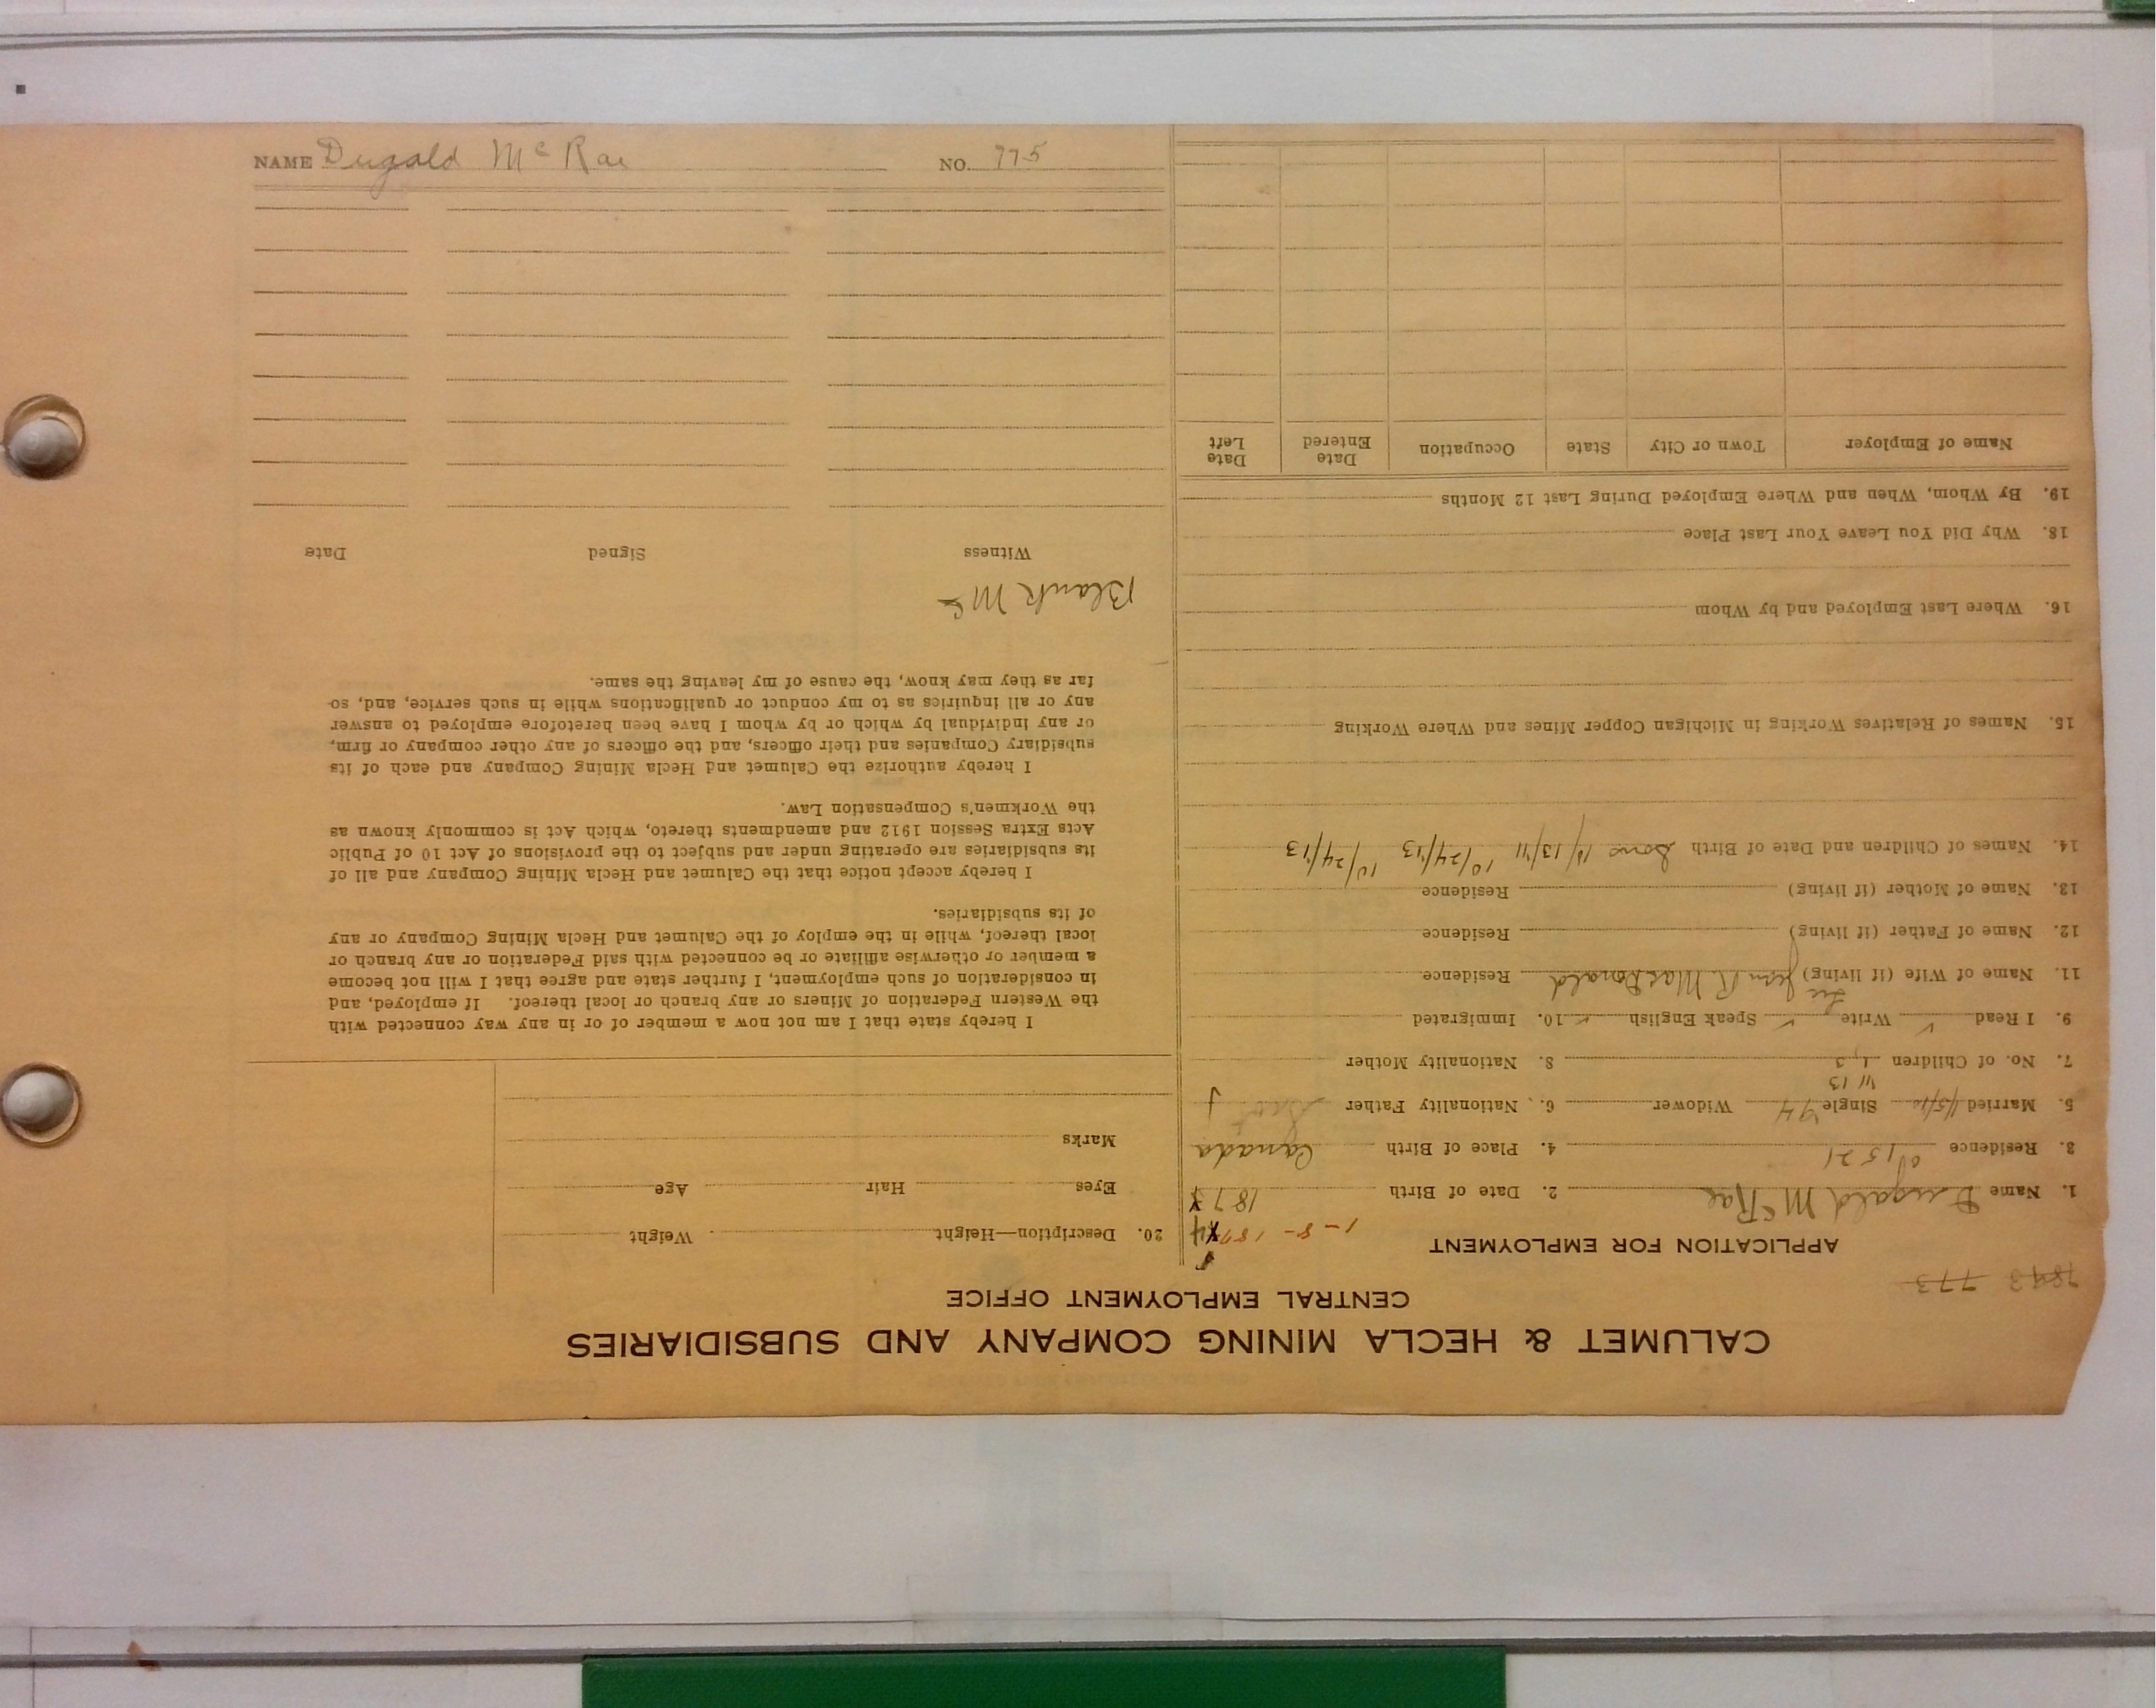 CALUMET & HECLA MINING COMPANY AND SUBSIDIARIES
CENTRAL EMPLOYMENT OFFICE
7893 773
APPLICATION FOR EMPLOYMENT
1-8-1874
1. Name Dugald McRae 2. Date of Birth 1873
3. Residence 1521 4. Place of Birth Canada
5. Married 1/5/10 Single Widower 6. Nationality Father Scot
'11 13
7. No. of Children 1, 3 8. Nationality Mother
9. I Read ✓ Write ✓ Speak English ✓ 10. Immigrated
11. Name of Wife (if living) R. MacDonald Residence
12. Name of Father (if living) Residence
13. Name of Mother (if living) Residence
14. Names of Children and Date of Birth Sons 11/13/'11 10/24/'13 10/24/'13
15. Names of Relatives Working in Michigan Copper Mines and Where Working
16. Where Last Employed and by Whom
18. Why Did You Leave Your Last Place
19. By Whom, When and Where Employed During Last 12 Months
Name of Employer Town or City State Occupation Date Entered Date Left
20. Description—Height Weight
Eyes Hair Age
Marks
I hereby state that I am not now a member of or in any way connected with
the Western Federation of Miners or any branch or local thereof. If employed, and
in consideration of such employment, I further state and agree that I will not become
a member or otherwise affiliate or be connected with said Federation or any branch or
local thereof, while in the employ of the Calumet and Hecla Mining Company or any
of its subsidiaries.
I hereby accept notice that the Calumet and Hecla Mining Company and all of
its subsidiaries are operating under and subject to the provisions of Act 10 of Public
Acts Extra Session 1912 and amendments thereto, which Act is commonly known as
the Workmen's Compensation Law.
I hereby authorize the Calumet and Hecla Mining Company and each of its
subsidiary Companies and their officers, and the officers of any other company or firm,
or any individual by which or by whom I have been heretofore employed to answer
any or all inquiries as to my conduct or qualifications while in such service, and, so
far as they may know, the cause of my leaving the same.
Blank Mc
Witness Signed Date
NAME Dugald McRae NO. 775